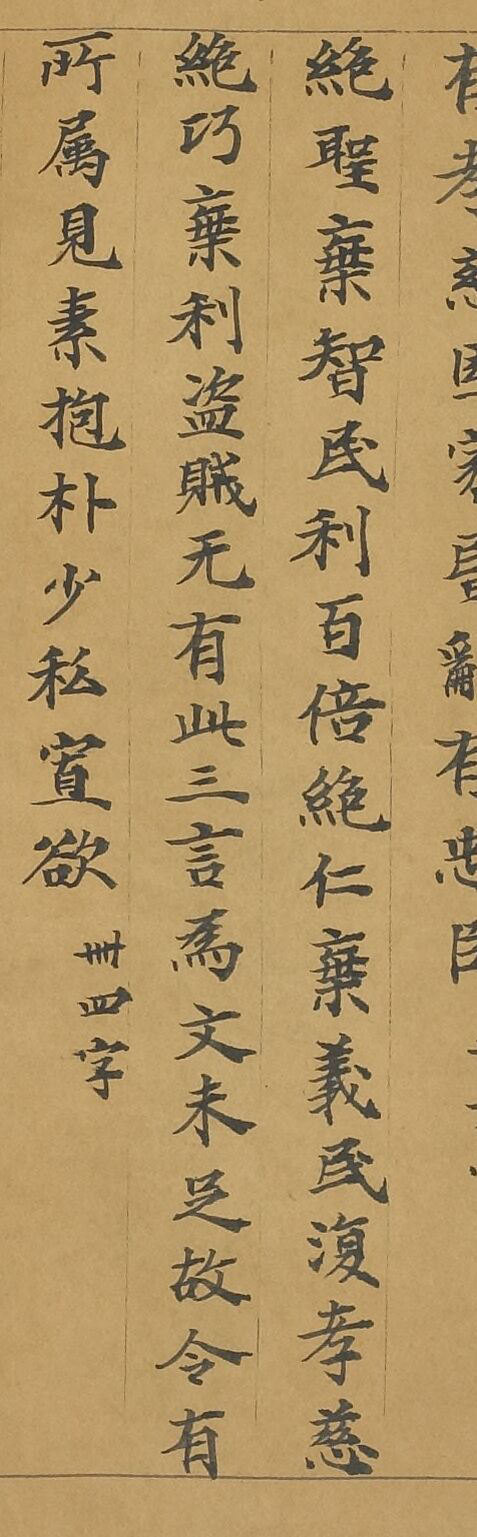 有孝慈国家昏亂有忠臣
絶聖棄智民利百倍絶仁棄義民復孝慈
絶巧棄利盗賊无有此三言為文未足故令有
所属見素抱朴少私寡欲 卌四字